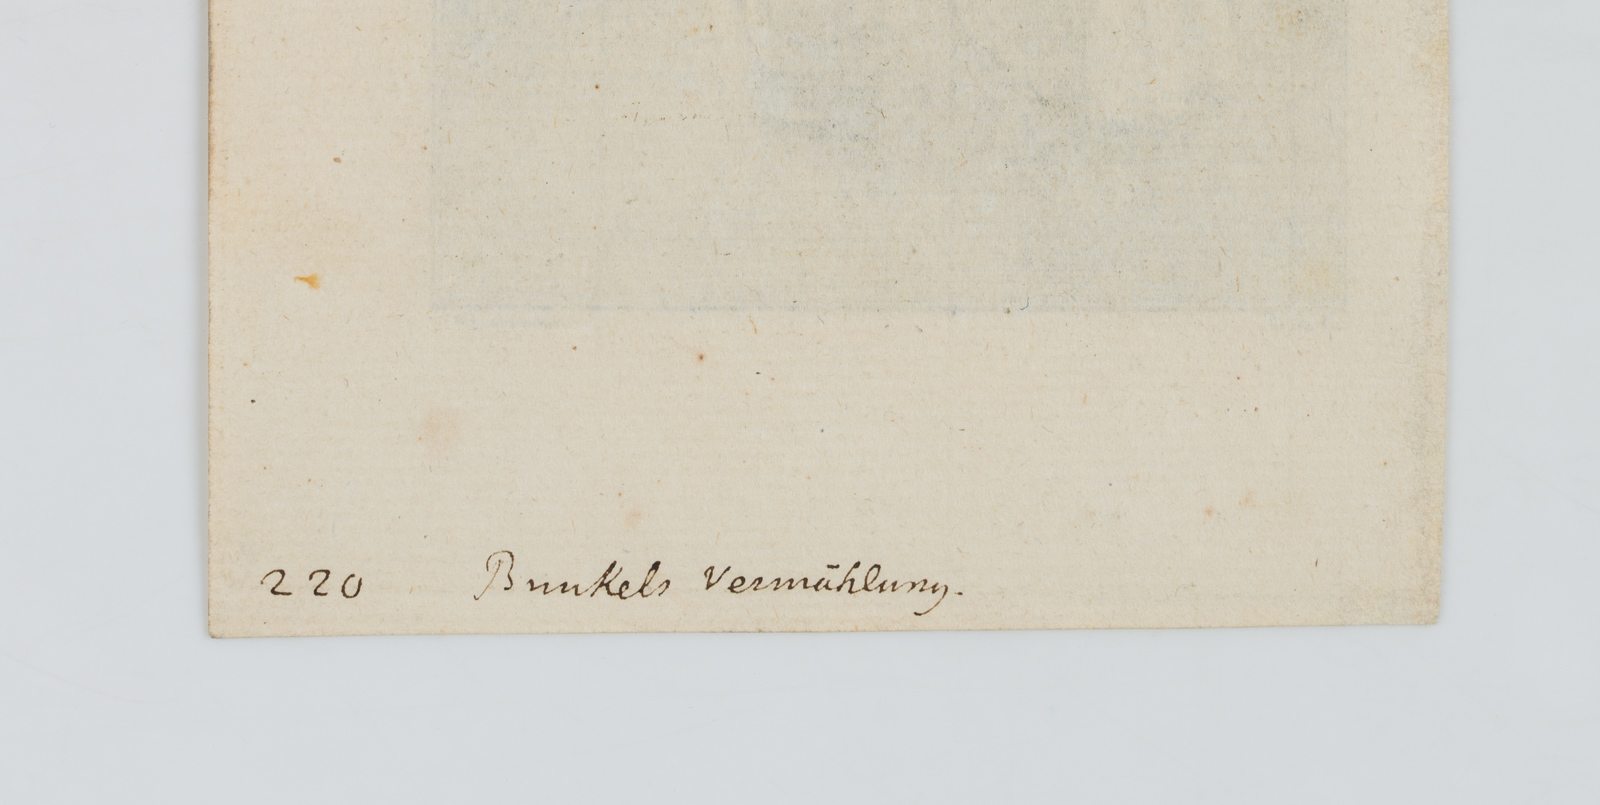 220 Bunkels Vermählung.